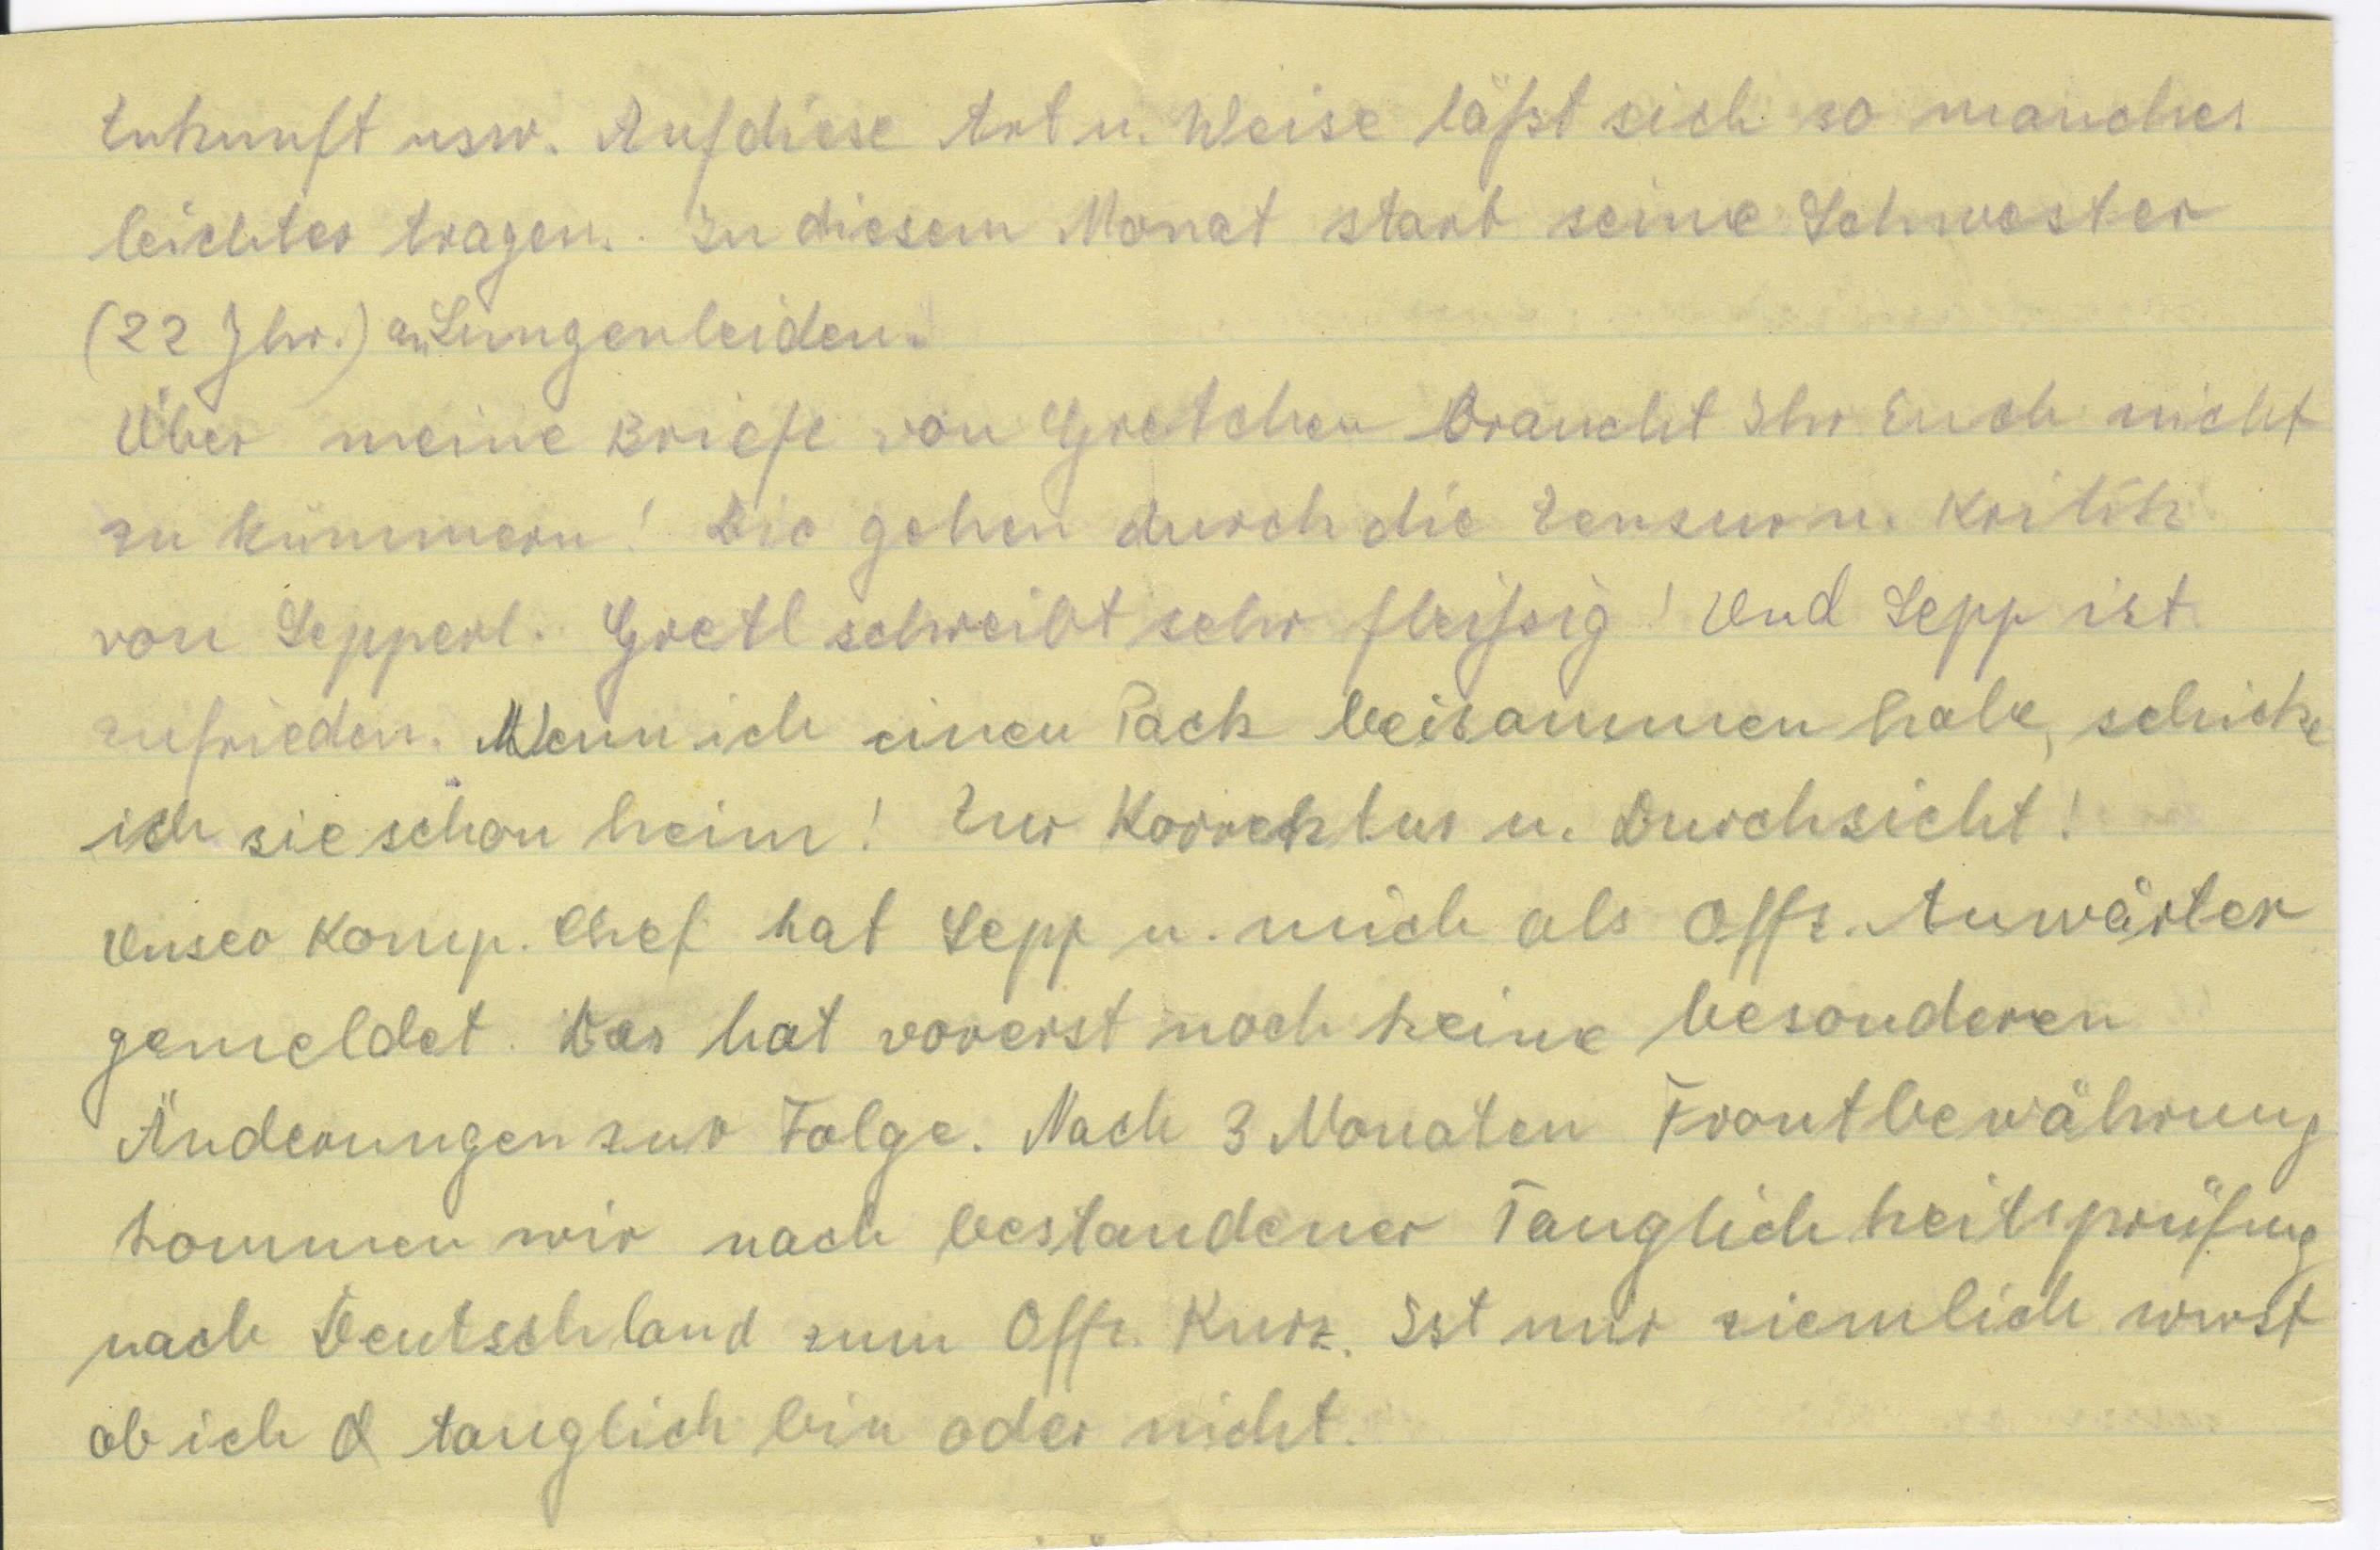 Zukunft usw. Auf diese Art u. Weise läßt sich so manches
leichter tragen. In diesem Monat starb seine Schwester
(22 Jhr.) an Lungenleiden.
Über meine Briefe von Gretchen braucht Ihr Euch nicht
zu kümmern! Die gehen durch die Zensur u. Kritik
von Sepperl. Gretl schreibt sehr fleißig! Und Sepp ist
zufrieden. Wenn ich einen Pack beisammen habe, schicke
ich sie schon heim! Zur Korrektur u. Durchsicht!
Unser Komp. Chef hat Sepp u. mich als Offz. Anwärter
gemeldet. Das hat vorerst noch keine besonderen
Änderungen zur Folge. Nach 3 Monaten Frontbewährung
kommen wir nach bestandener Tauglichkeitsprüfung
nach Deutschland zum Offz. Kurs. Ist mir ziemlich wurst
ob ich tauglich bin oder nicht.